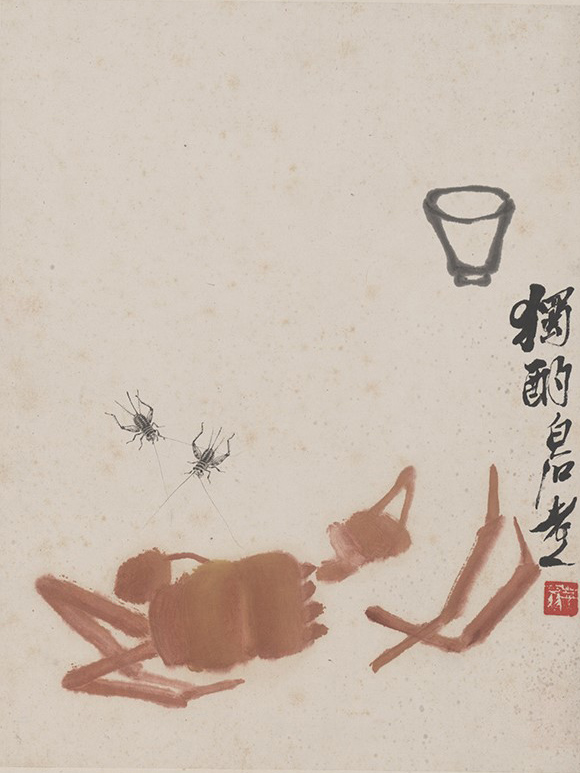 獨酌白石老人